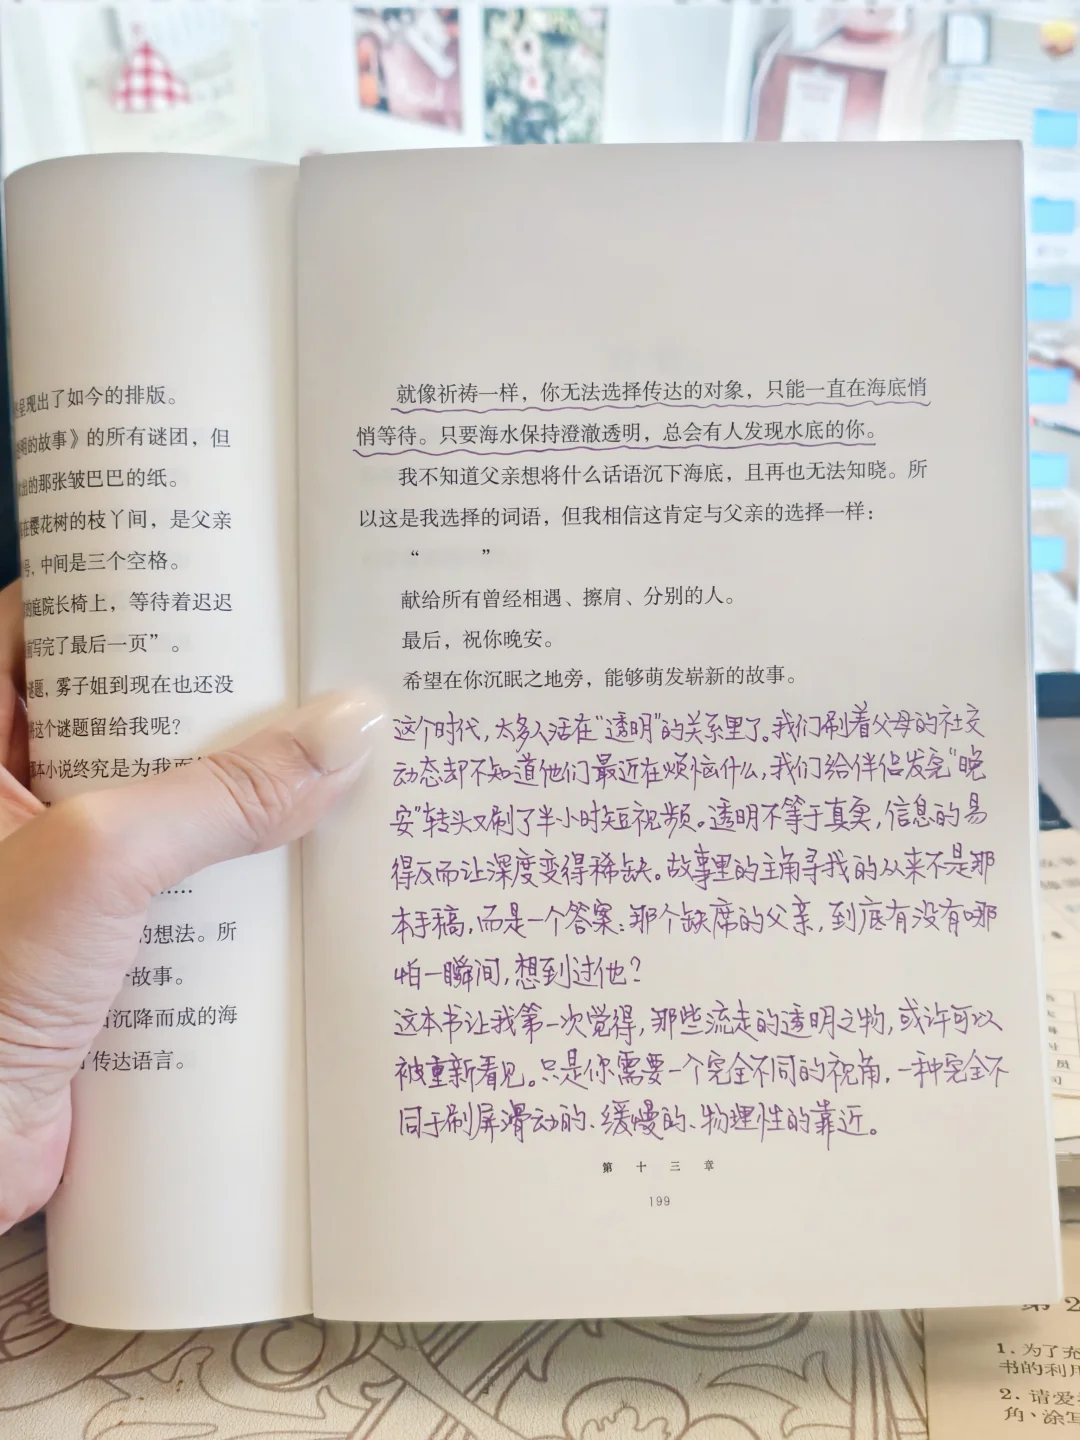 呈现出了如今的排版。
明的故事》的所有谜团，但
出的那张皱巴巴的纸。
在樱花树的枝丫间，是父亲
号，中间是三个空格。
的庭院长椅上，等待着迟迟
前写完了最后一页”。
谜题，雾子姐到现在也还没
将这个谜题留给我呢？
本小说终究是为我而
……
的想法。所
故事。
沉降而成的海
了传达语言。
就像祈祷一样，你无法选择传达的对象，只能一直在海底悄
悄等待。只要海水保持澄澈透明，总会有人发现水底的你。
我不知道父亲想将什么话语沉下海底，且再也无法知晓。所
以这是我选择的词语，但我相信这肯定与父亲的选择一样：
“　　　”
献给所有曾经相遇、擦肩、分别的人。
最后，祝你晚安。
希望在你沉眠之地旁，能够萌发崭新的故事。
这个时代，太多人活在“透明”的关系里了。我们刷着父母的社交
动态却不知道他们最近在烦恼什么，我们给伴侣发完“晚
安”转头又刷了半小时短视频。透明不等于真实，信息的易
得反而让深度变得稀缺。故事里的主角寻找的从来不是那
本手稿，而是一个答案：那个缺席的父亲，到底有没有哪
怕一瞬间，想到过他？
这本书让我第一次觉得，那些流走的透明之物，或许可以
被重新看见。只是你需要一个完全不同的视角，一种完全不
同于刷屏滑动的、缓慢的、物理性的靠近。
第十三章
199
第2
1.为了充
书的利用
2.请爱
角、涂写